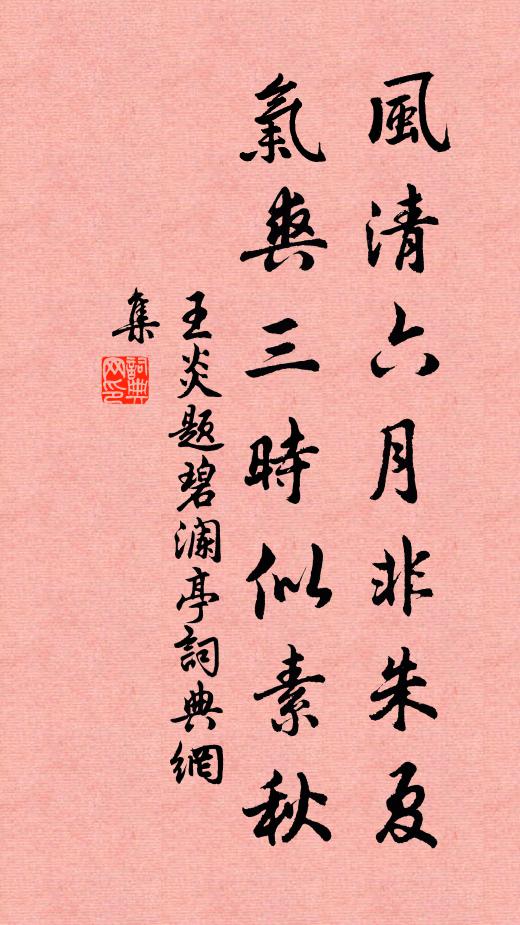 風清六月非朱夏
氣爽三時似素秋
王炎題碧瀾亭詞典網
集
詞典網印